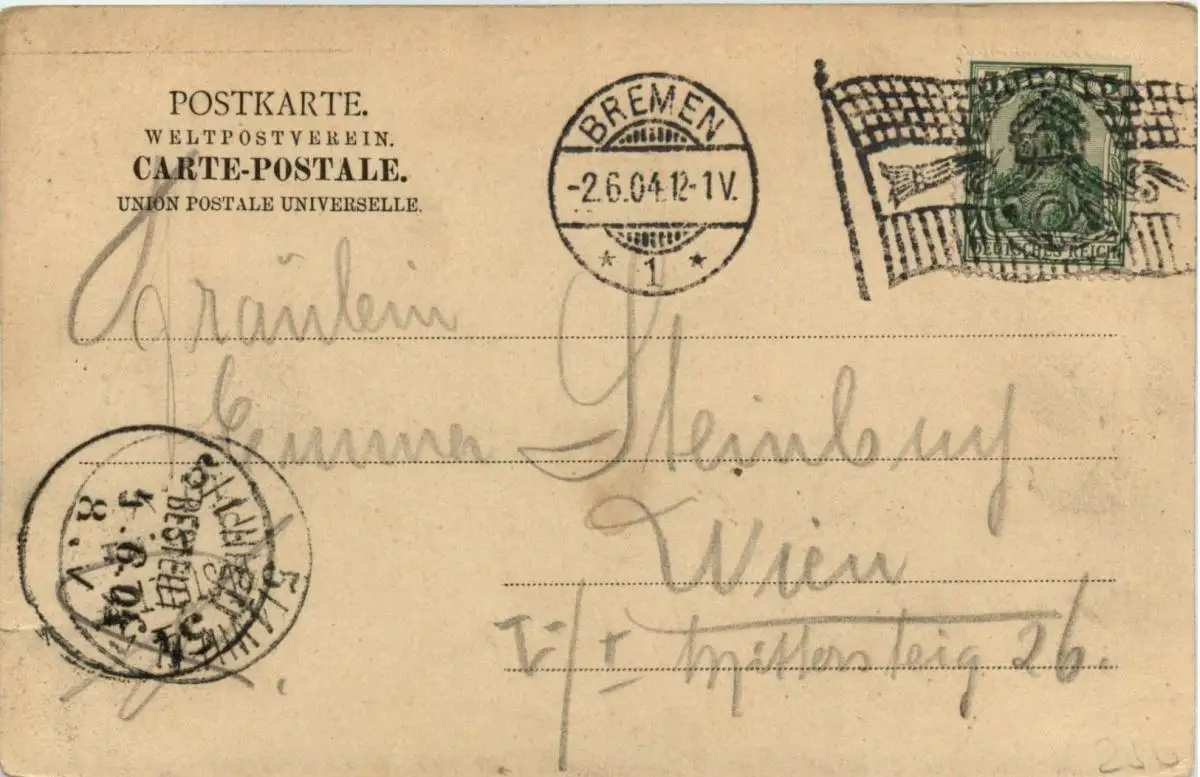 POSTKARTE.
WELTPOSTVEREIN.
CARTE-POSTALE.
UNION POSTALE UNIVERSELLE.
BREMEN
-2.6.04.12-1V.
* 1 *
DEUTSCHES REICH
Fräulein
Emma Steinburg
Wien
V/I Mittersteig 26.
5/1 WIEN
BESTELLT
8.V